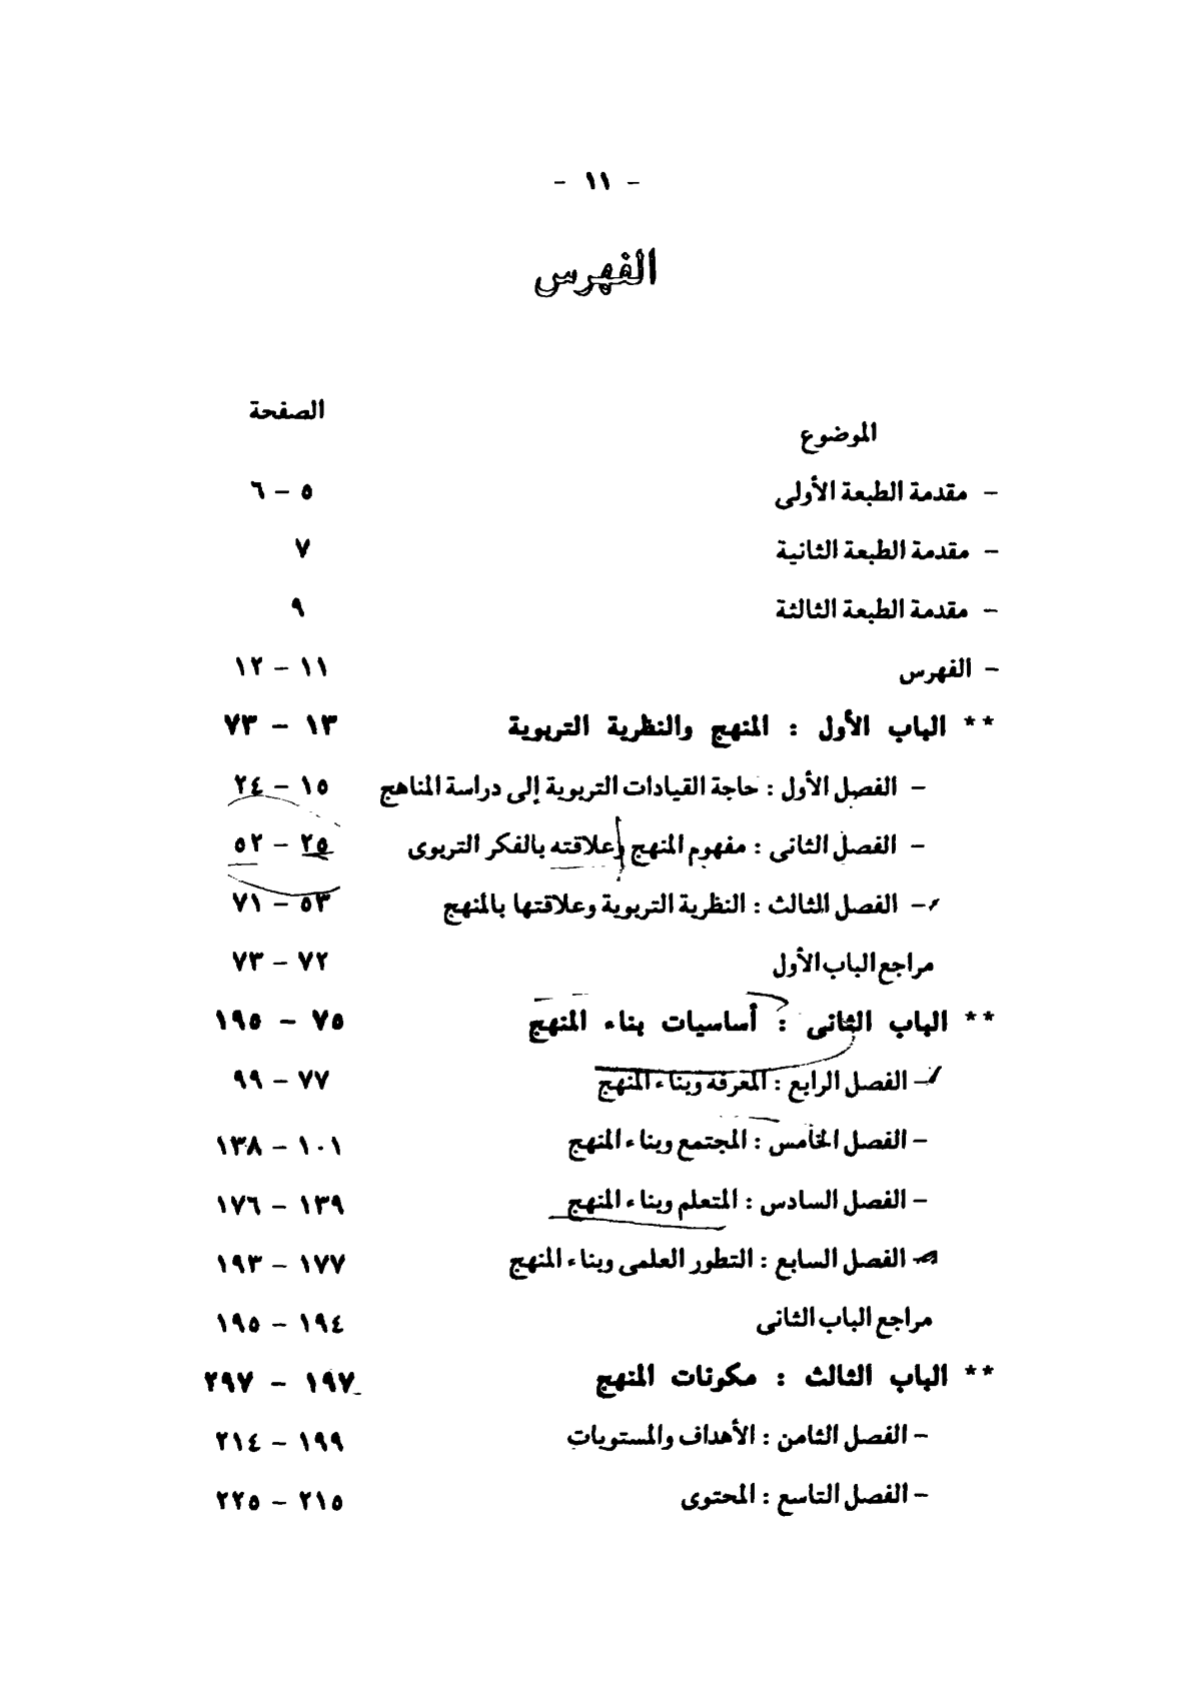 - ١١ -
الفهرس
الصفحة
الموضوع
- مقدمة الطبعة الأولى ٥ - ٦
- مقدمة الطبعة الثانية ٧
- مقدمة الطبعة الثالثة ٩
- الفهرس ١١ - ١٢
** الباب الأول : المنهج والنظرية التربوية ١٣ - ٧٣
- الفصل الأول : حاجة القيادات التربوية إلى دراسة المناهج ١٥ - ٢٤
- الفصل الثانى : مفهوم المنهج وعلاقته بالفكر التربوى ٢٥ - ٥٢
- الفصل الثالث : النظرية التربوية وعلاقتها بالمنهج ٥٣ - ٧١
مراجع الباب الأول ٧٢ - ٧٣
** الباب الثانى : أساسيات بناء المنهج ٧٥ - ١٩٥
- الفصل الرابع : المعرفة وبناء المنهج ٧٧ - ٩٩
- الفصل الخامس : المجتمع وبناء المنهج ١٠١ - ١٣٨
- الفصل السادس : المتعلم وبناء المنهج ١٣٩ - ١٧٦
- الفصل السابع : التطور العلمى وبناء المنهج ١٧٧ - ١٩٣
مراجع الباب الثانى ١٩٤ - ١٩٥
** الباب الثالث : مكونات المنهج ١٩٧ - ٢٩٧
- الفصل الثامن : الأهداف والمستويات ١٩٩ - ٢١٤
- الفصل التاسع : المحتوى ٢١٥ - ٢٢٥